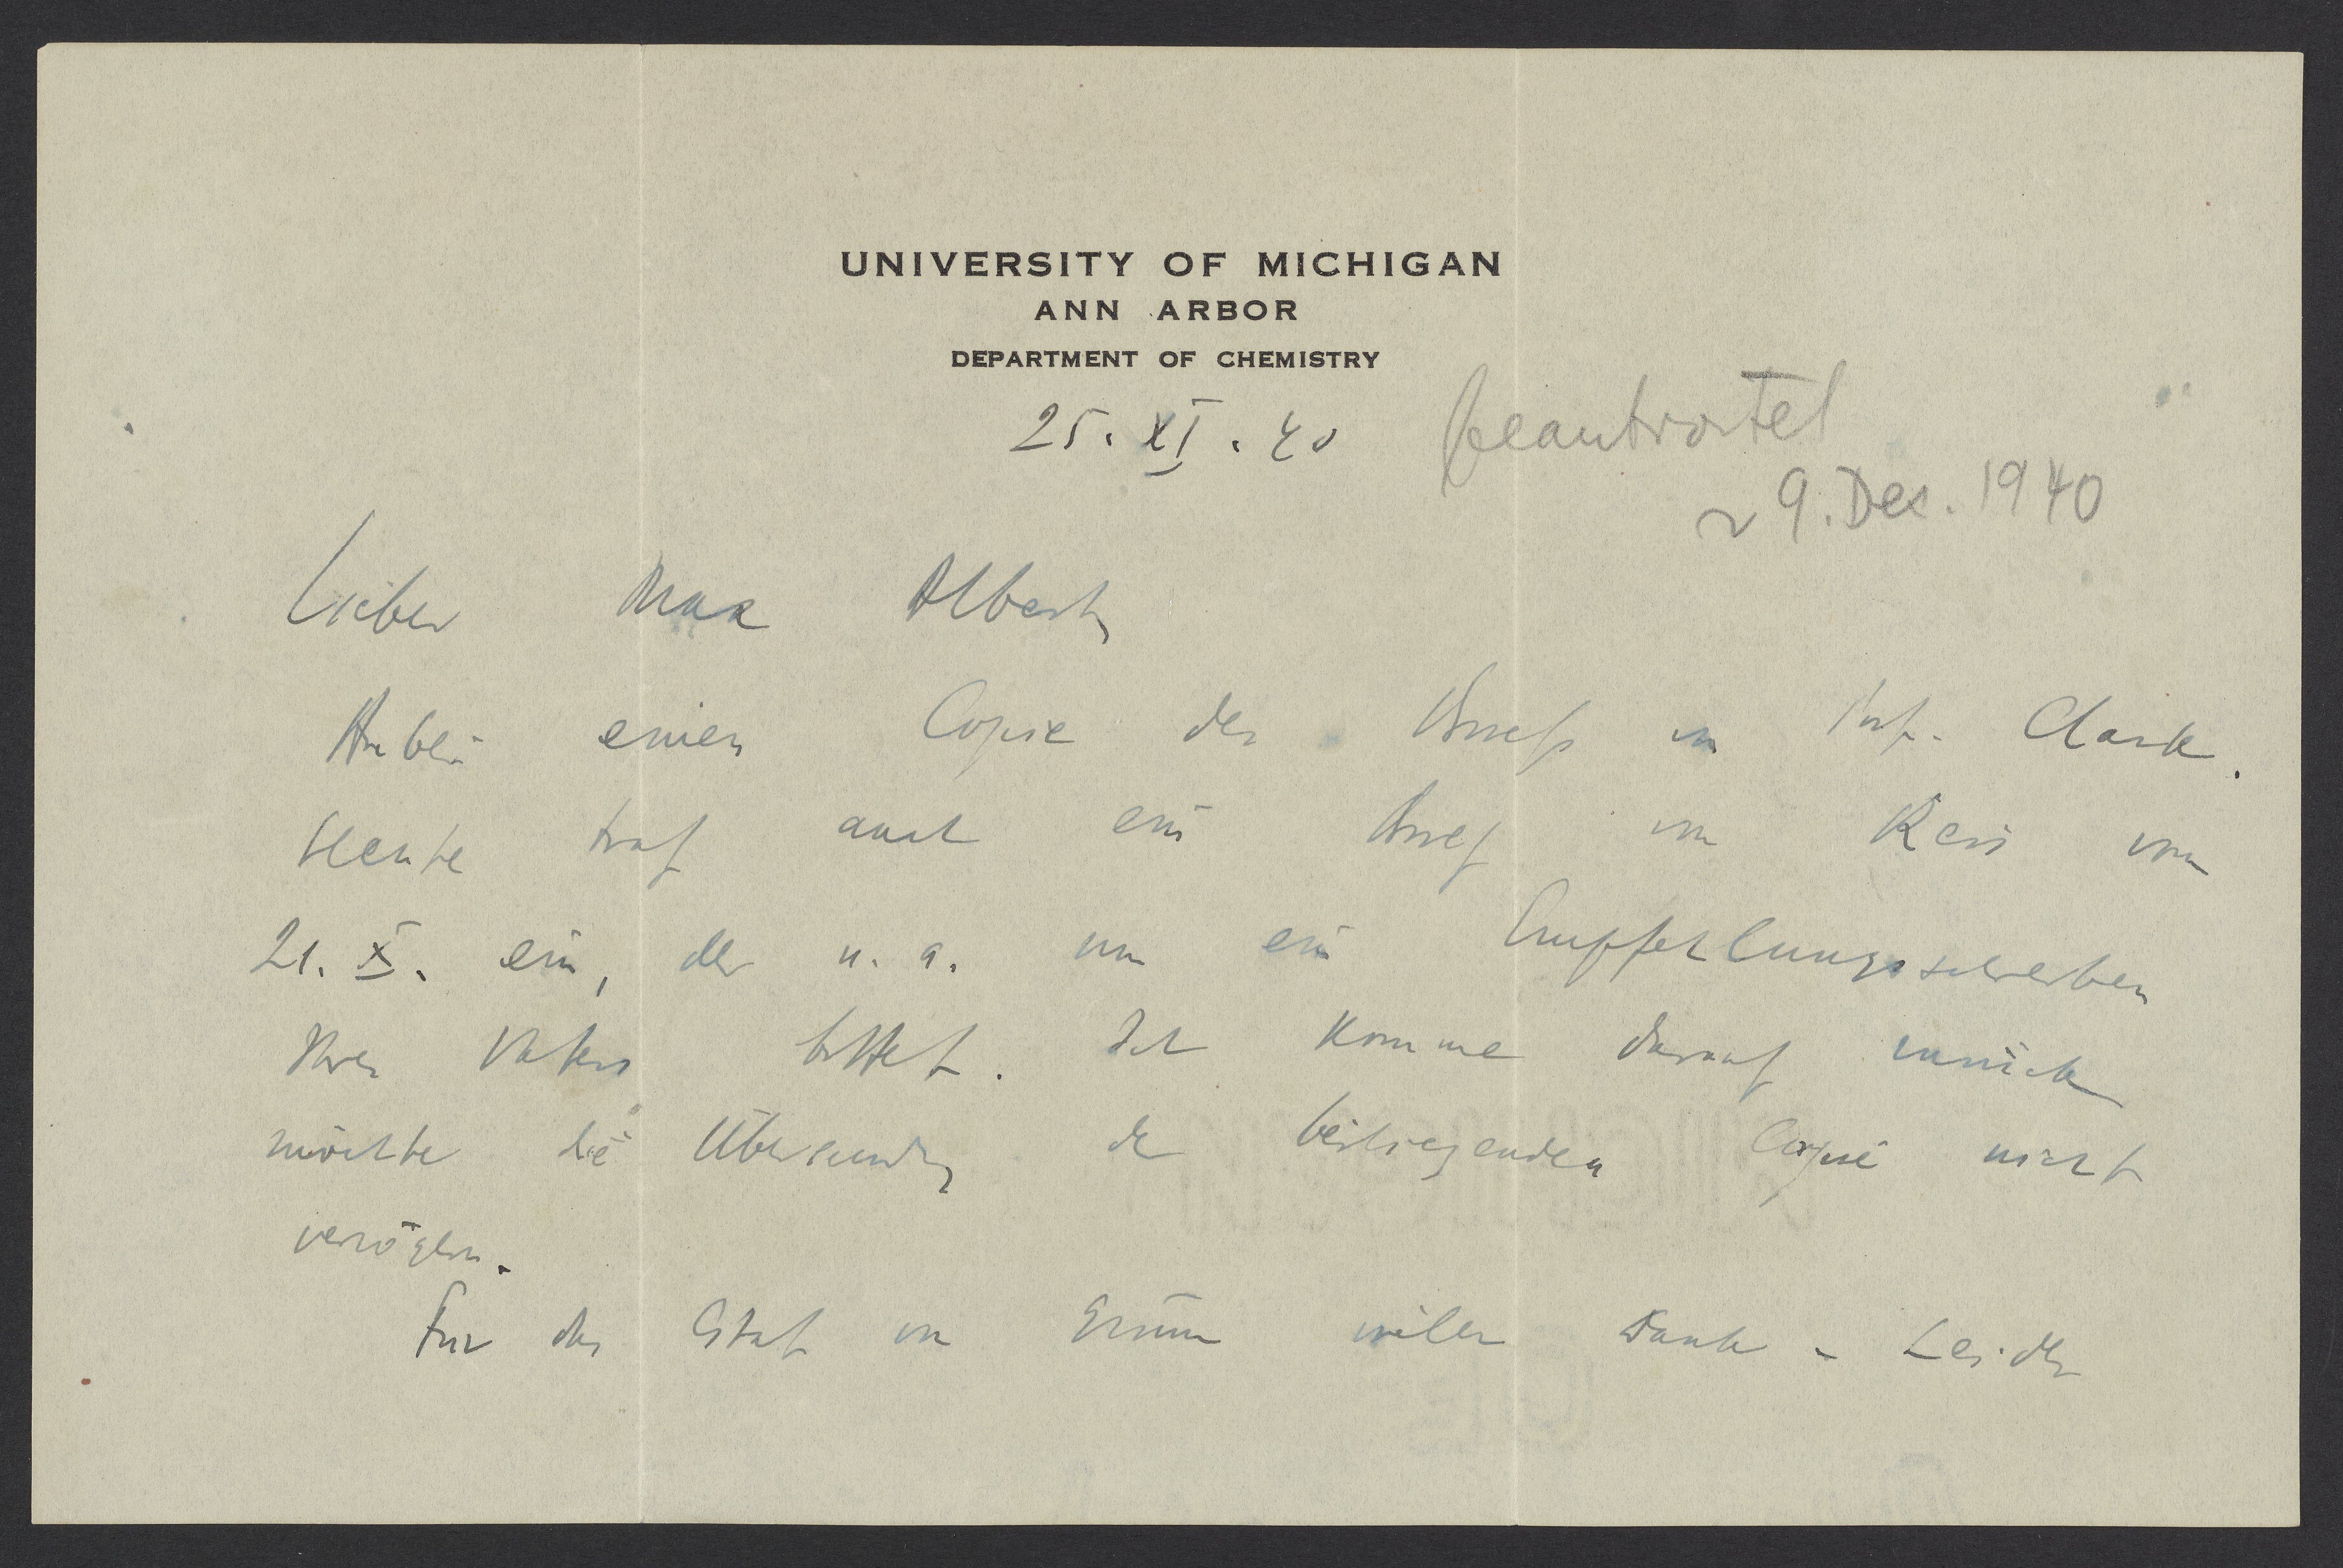 UNIVERSITY OF MICHIGAN
ANN ARBOR
DEPARTMENT OF CHEMISTRY
25. XI. 40 beantwortet
~ 9. Dez. 1940
Lieber Max Albert,
Anbei einen Copie des Briefs an Prof. Clark.
Heute traf auch ein Brief von Reis vom
21. X. ein, der u. a. um ein Empfehlungsschreiben
Ihres Vaters bittet. Ich komme darauf zurück
möchte die Übersendung der beiliegenden Copie nicht
verzögern.
Für das Citat von vielen Dank. Leider